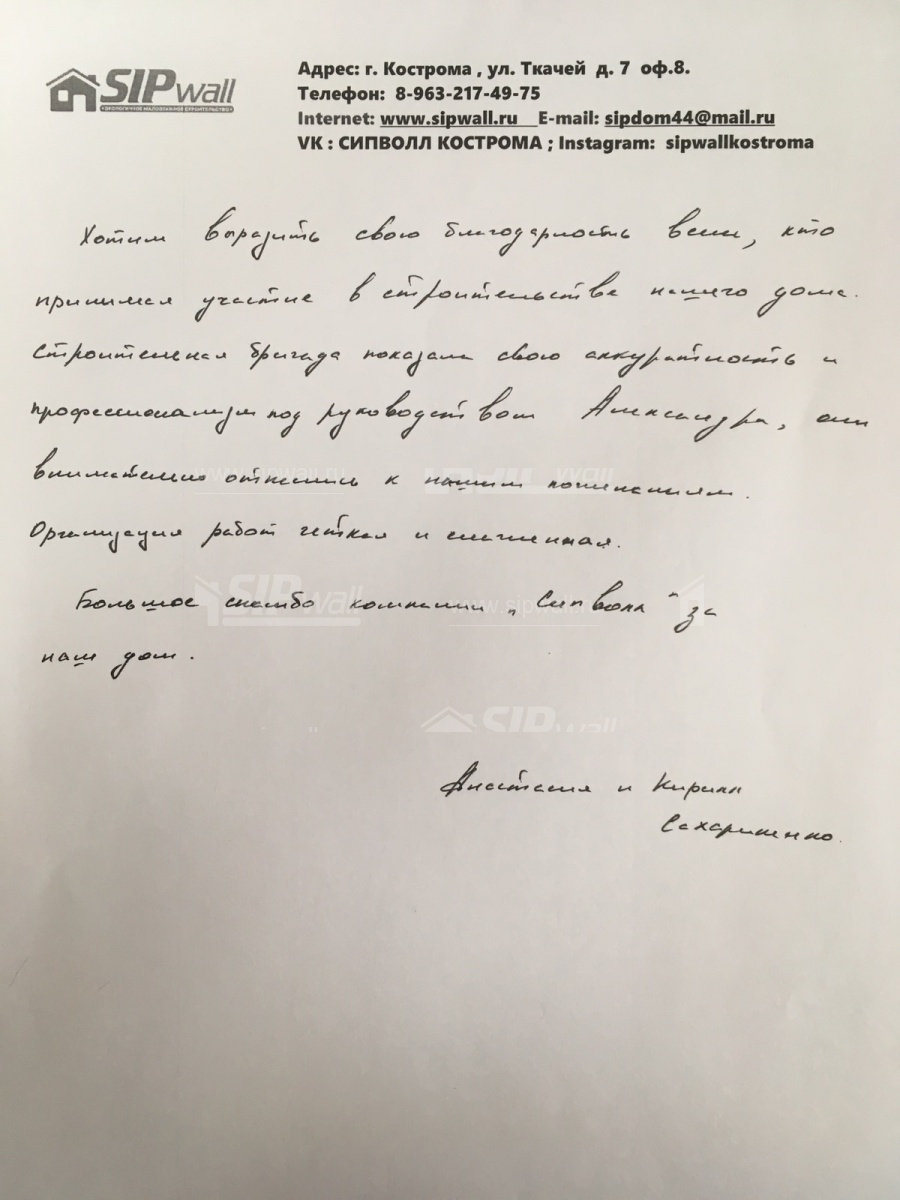 SIPwall
ЭКОЛОГИЧНОЕ МАЛОЭТАЖНОЕ СТРОИТЕЛЬСТВО
Адрес: г. Кострома , ул. Ткачей д. 7 оф.8.
Телефон: 8-963-217-49-75
Internet: www.sipwall.ru E-mail: sipdom44@mail.ru
VK : СИПВОЛЛ КОСТРОМА ; Instagram: sipwallkostroma
Хотим выразить свою благодарность всем, кто
принимал участие в строительстве нашего дома.
Строительная бригада показали свою аккуратность и
профессионализм под руководством Александра, они
внимательно отнеслись к нашим пожеланиям.
Организация работ четкая и слаженная.
www.sipwall.ru
Большое спасибо компании „Сипволл" за
SIPwall www.sipwall.ru
наш дом.
SIPwall
Анастасия и Кирилл